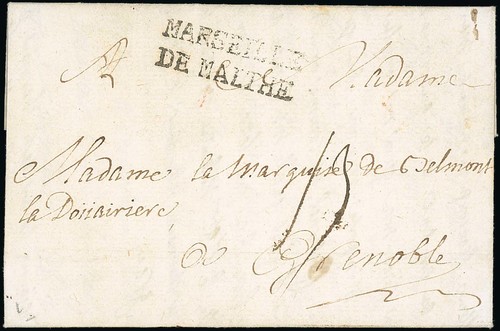 MARSEILLE
DE MALTHE
A Madame
Madame la Marquise de Belmont
la Doüairiere
13
a Grenoble